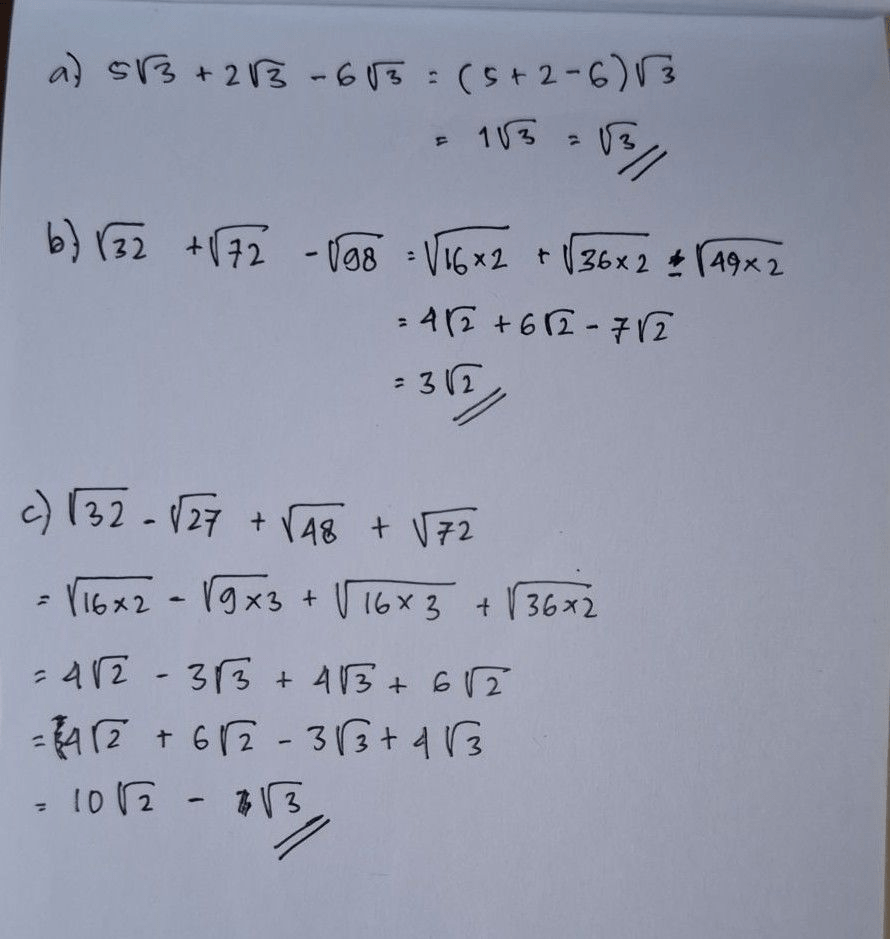 a) 5√3 + 2√3 - 6√3 = (5 + 2 - 6)√3
= 1√3 = √3
b) √32 + √72 - √98 = √16×2 + √36×2 - √49×2
= 4√2 + 6√2 - 7√2
= 3√2
c) √32 - √27 + √48 + √72
= √16×2 - √9×3 + √16×3 + √36×2
= 4√2 - 3√3 + 4√3 + 6√2
= 4√2 + 6√2 - 3√3 + 4√3
= 10√2 - √3